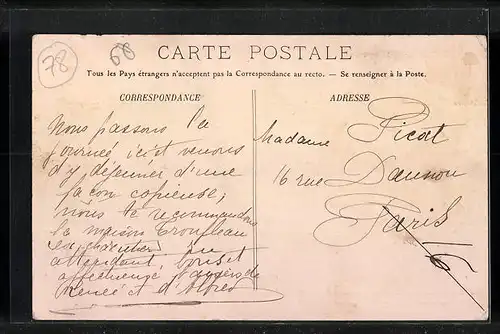 78
68
CARTE POSTALE
Tous les Pays étrangers n'acceptent pas la Correspondance au recto. — Se renseigner à la Poste.
CORRESPONDANCE
Nous passons la
journée ici et venons
d'y déjeuner d'une
façon copieuse,
nous te recommandons
la maison
En
attendant bons et
affectueux baisers de
Renée et d'Alfred
ADRESSE
Madame Picat
16 rue Daunou
Paris